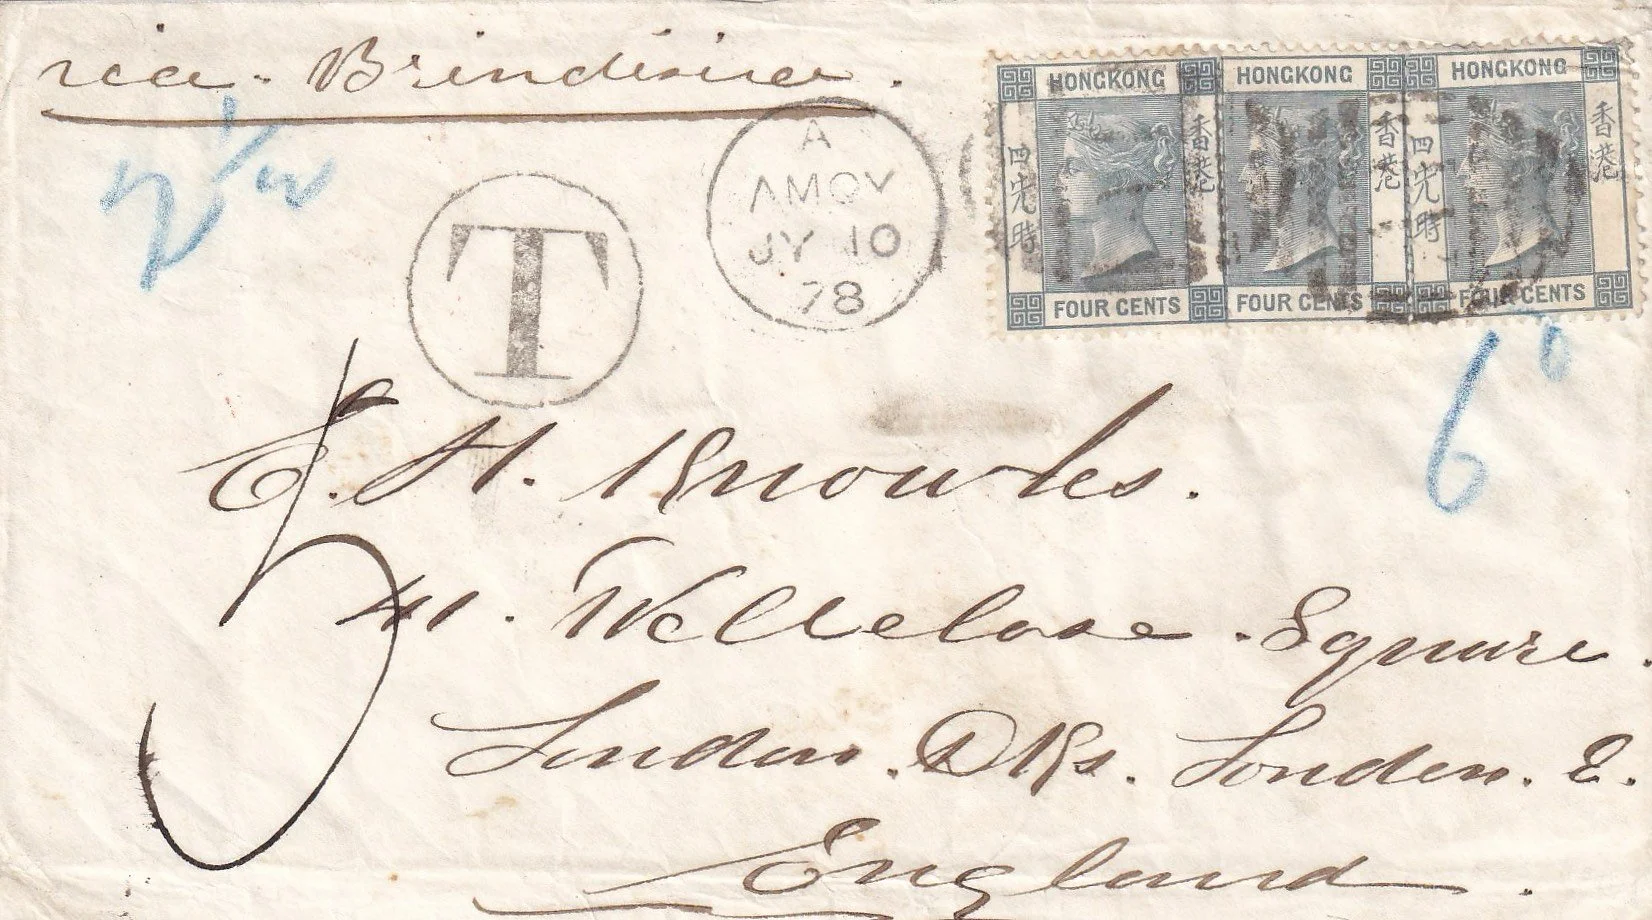 via Brindisi
2 1/2
T
A
AMOY
JY 10
78
HONGKONG HONGKONG HONGKONG
四先時 香港 香港 四先時 香港
FOUR CENTS FOUR CENTS FOUR CENTS
6
5
E. H. Knowles.
41. Wellclose Square.
London. Dks. London. E.
England.